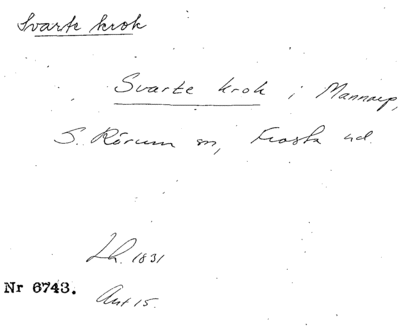 Svarte krok
Svarte krok i Mannarp,
S. Rörum sn, Frosta hd.
Lh. 1831
Nr 6743.
Ant 15.